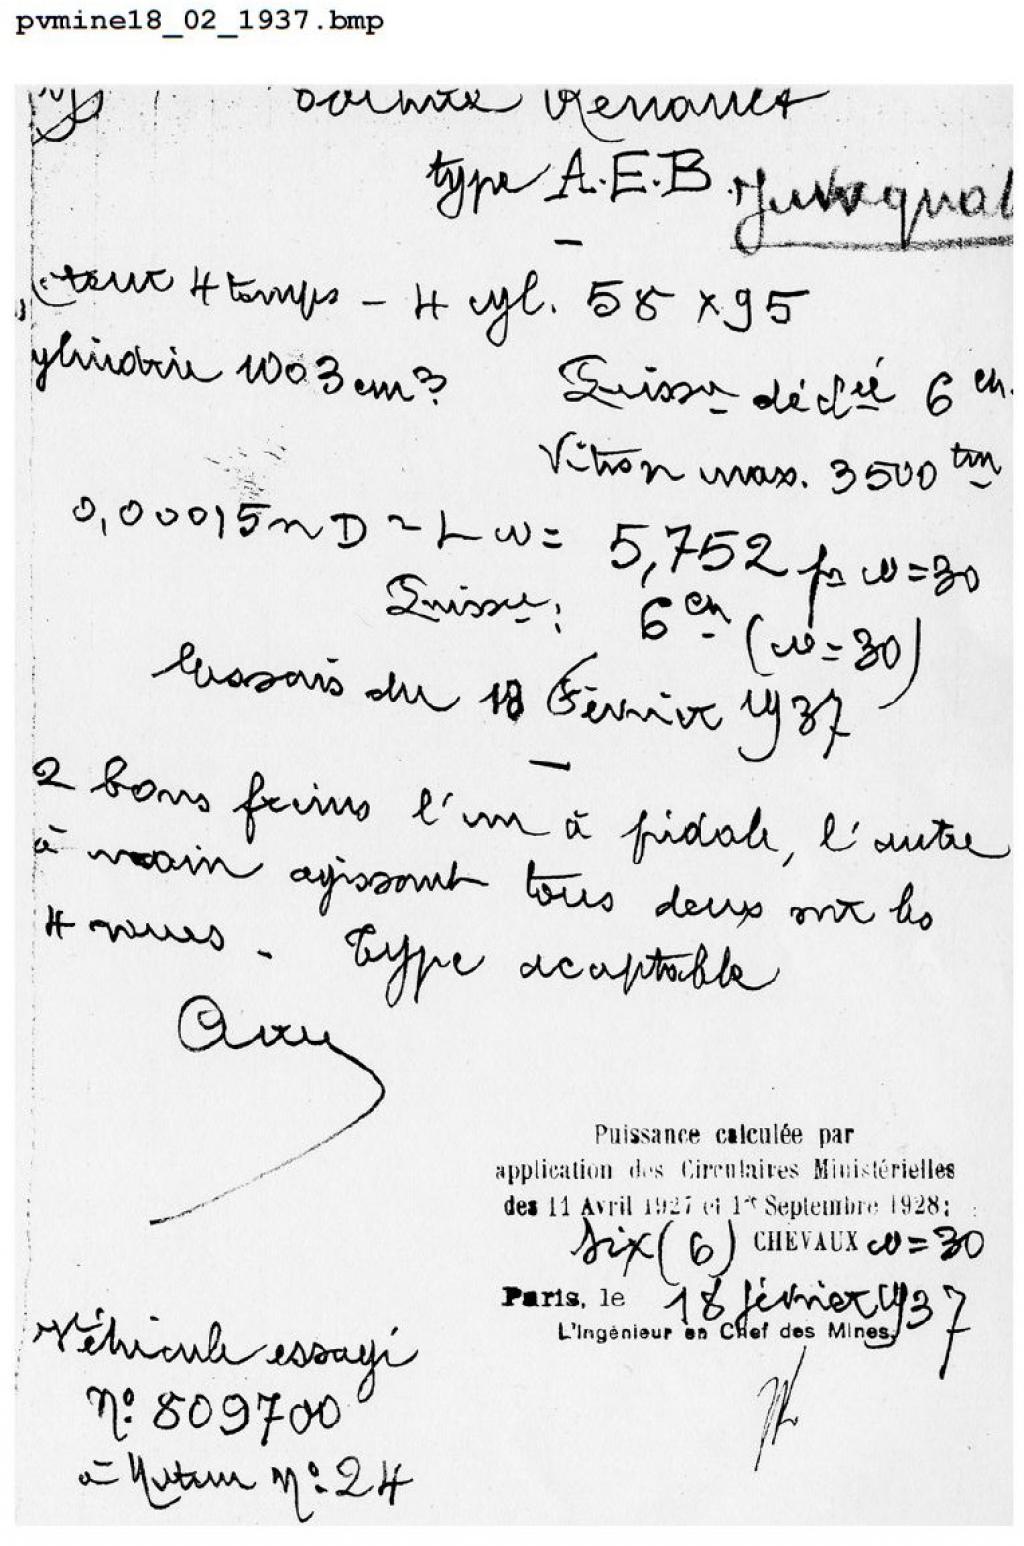 pvmine18_02_1937.bmp
Renault
type A.E.B. Juvaquat
4 temps - 4 cyl. 58 x 95
ylindrée 1003 cm3 Puissce déclée 6 ch.
max. 3500 tm
0,00015 n D2 L w = 5,752 pr w = 30
Puissce : 6 ch (w = 30)
Essais du 18 Février 1937
2 bons freins l'un à pédale, l'autre
à main agissant tous deux sur les
4 roues - Type acceptable
Puissance calculée par
application des Circulaires Ministérielles
des 11 Avril 1927 et 1er Septembre 1928 :
six (6) CHEVAUX w = 30
Paris, le 18 février 1937
L'Ingénieur en Chef des Mines,
Véhicule essayé
N° 809700
à Moteur N° 24